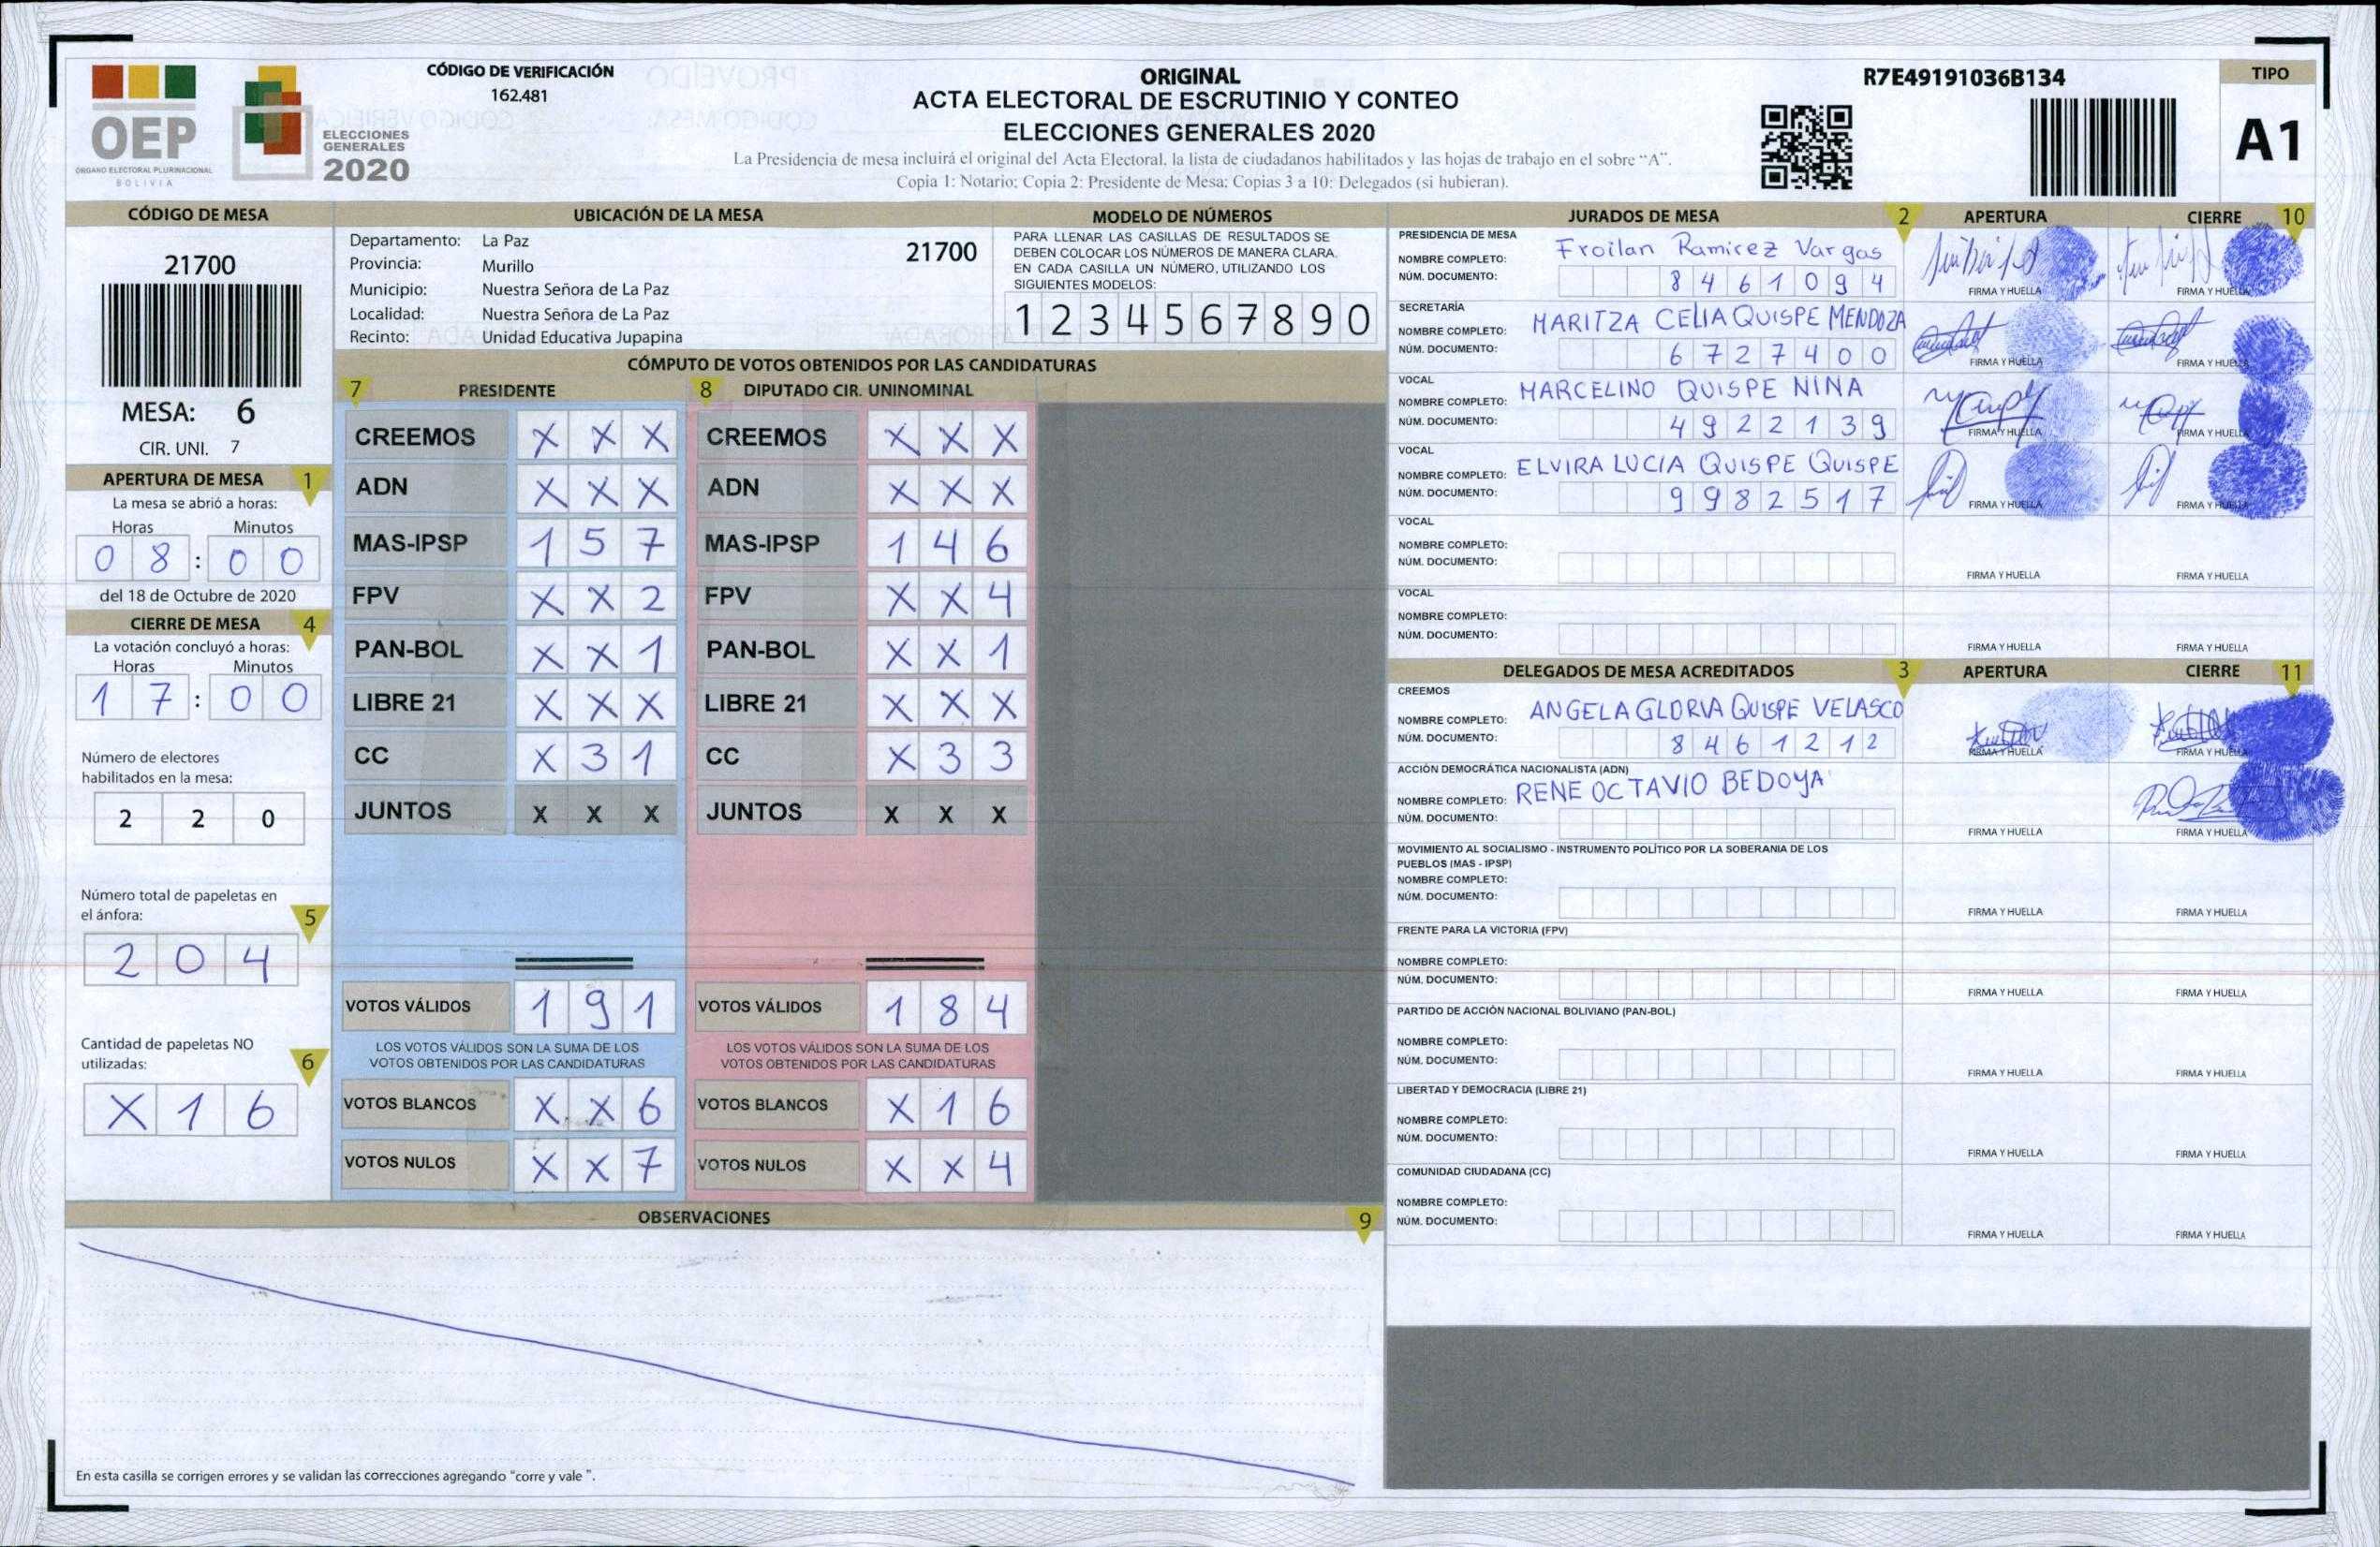 CÓDIGO DE VERIFICACIÓN
162.481
OEP
ÓRGANO ELECTORAL PLURINACIONAL
BOLIVIA
ELECCIONES
GENERALES
2020
ORIGINAL
ACTA ELECTORAL DE ESCRUTINIO Y CONTEO
ELECCIONES GENERALES 2020
La Presidencia de mesa incluirá el original del Acta Electoral, la lista de ciudadanos habilitados y las hojas de trabajo en el sobre "A".
Copia 1: Notario; Copia 2: Presidente de Mesa; Copias 3 a 10: Delegados (si hubieran).
R7E49191036B134
TIPO
A1
CÓDIGO DE MESA
21700
MESA: 6
CIR. UNI. 7
APERTURA DE MESA 1
La mesa se abrió a horas:
Horas Minutos
0 8 : 0 0
del 18 de Octubre de 2020
CIERRE DE MESA 4
La votación concluyó a horas:
Horas Minutos
1 7 : 0 0
Número de electores
habilitados en la mesa:
2 2 0
Número total de papeletas en
el ánfora: 5
2 0 4
Cantidad de papeletas NO
utilizadas: 6
X 1 6
UBICACIÓN DE LA MESA
Departamento: La Paz 21700
Provincia: Murillo
Municipio: Nuestra Señora de La Paz
Localidad: Nuestra Señora de La Paz
Recinto: Unidad Educativa Jupapina
MODELO DE NÚMEROS
PARA LLENAR LAS CASILLAS DE RESULTADOS SE
DEBEN COLOCAR LOS NÚMEROS DE MANERA CLARA,
EN CADA CASILLA UN NÚMERO, UTILIZANDO LOS
SIGUIENTES MODELOS:
1 2 3 4 5 6 7 8 9 0
CÓMPUTO DE VOTOS OBTENIDOS POR LAS CANDIDATURAS
7 PRESIDENTE 8 DIPUTADO CIR. UNINOMINAL
CREEMOS X X X CREEMOS X X X
ADN X X X ADN X X X
MAS-IPSP 1 5 7 MAS-IPSP 1 4 6
FPV X X 2 FPV X X 4
PAN-BOL X X 1 PAN-BOL X X 1
LIBRE 21 X X X LIBRE 21 X X X
CC X 3 1 CC X 3 3
JUNTOS X X X JUNTOS X X X
VOTOS VÁLIDOS 1 9 1 VOTOS VÁLIDOS 1 8 4
LOS VOTOS VÁLIDOS SON LA SUMA DE LOS LOS VOTOS VÁLIDOS SON LA SUMA DE LOS
VOTOS OBTENIDOS POR LAS CANDIDATURAS VOTOS OBTENIDOS POR LAS CANDIDATURAS
VOTOS BLANCOS X X 6 VOTOS BLANCOS X 1 6
VOTOS NULOS X X 7 VOTOS NULOS X X 4
OBSERVACIONES 9
En esta casilla se corrigen errores y se validan las correcciones agregando "corre y vale ".
JURADOS DE MESA 2 APERTURA CIERRE 10
PRESIDENCIA DE MESA
NOMBRE COMPLETO: Froilan Ramirez Vargas
NÚM. DOCUMENTO: 8 4 6 1 0 9 4
FIRMA Y HUELLA FIRMA Y HUELLA
SECRETARÍA
NOMBRE COMPLETO: MARITZA CELIA QUISPE MENDOZA
NÚM. DOCUMENTO: 6 7 2 7 4 0 0
FIRMA Y HUELLA FIRMA Y HUELLA
VOCAL
NOMBRE COMPLETO: MARCELINO QUISPE NINA
NÚM. DOCUMENTO: 4 9 2 2 1 3 9
FIRMA Y HUELLA FIRMA Y HUELLA
VOCAL
NOMBRE COMPLETO: ELVIRA LUCIA QUISPE QUISPE
NÚM. DOCUMENTO: 9 9 8 2 5 1 7
FIRMA Y HUELLA FIRMA Y HUELLA
VOCAL
NOMBRE COMPLETO:
NÚM. DOCUMENTO:
FIRMA Y HUELLA FIRMA Y HUELLA
VOCAL
NOMBRE COMPLETO:
NÚM. DOCUMENTO:
FIRMA Y HUELLA FIRMA Y HUELLA
DELEGADOS DE MESA ACREDITADOS 3 APERTURA CIERRE 11
CREEMOS
NOMBRE COMPLETO: ANGELA GLORIA QUISPE VELASCO
NÚM. DOCUMENTO: 8 4 6 1 2 1 2
FIRMA Y HUELLA FIRMA Y HUELLA
ACCIÓN DEMOCRÁTICA NACIONALISTA (ADN)
NOMBRE COMPLETO: RENE OCTAVIO BEDOYA
NÚM. DOCUMENTO:
FIRMA Y HUELLA FIRMA Y HUELLA
MOVIMIENTO AL SOCIALISMO - INSTRUMENTO POLÍTICO POR LA SOBERANIA DE LOS
PUEBLOS (MAS - IPSP)
NOMBRE COMPLETO:
NÚM. DOCUMENTO:
FIRMA Y HUELLA FIRMA Y HUELLA
FRENTE PARA LA VICTORIA (FPV)
NOMBRE COMPLETO:
NÚM. DOCUMENTO:
FIRMA Y HUELLA FIRMA Y HUELLA
PARTIDO DE ACCIÓN NACIONAL BOLIVIANO (PAN-BOL)
NOMBRE COMPLETO:
NÚM. DOCUMENTO:
FIRMA Y HUELLA FIRMA Y HUELLA
LIBERTAD Y DEMOCRACIA (LIBRE 21)
NOMBRE COMPLETO:
NÚM. DOCUMENTO:
FIRMA Y HUELLA FIRMA Y HUELLA
COMUNIDAD CIUDADANA (CC)
NOMBRE COMPLETO:
NÚM. DOCUMENTO:
FIRMA Y HUELLA FIRMA Y HUELLA